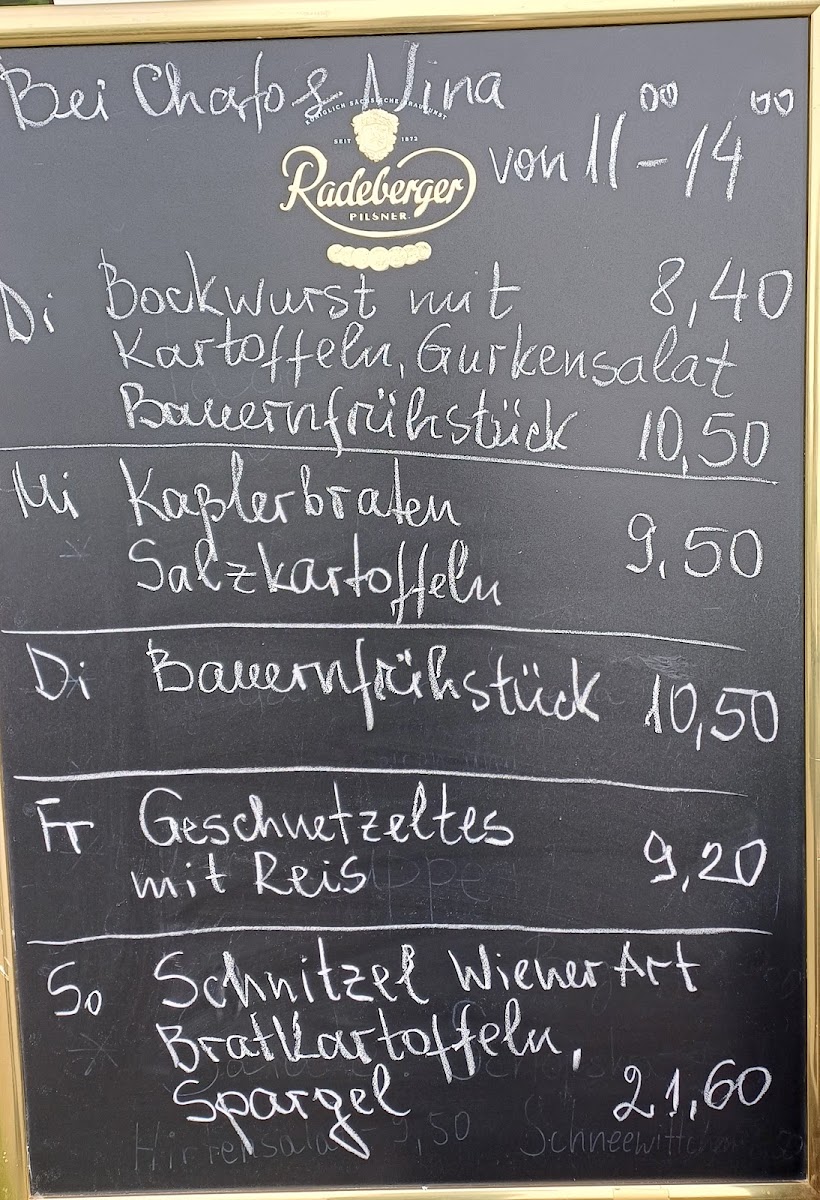 Bei Chafo & Nina
KÖNIGLICH SÄCHSISCHE BRAUKUNST
SEIT 1872
Radeberger
PILSNER
von 11 00 - 14 00
Di Bockwurst mit 8,40
Kartoffeln, Gurkensalat
Bauernfrühstück 10,50
Mi Kaßlerbraten
Salzkartoffeln 9,50
Di Bauernfrühstück 10,50
Fr Geschnetzeltes
mit Reis 9,20
So Schnitzel Wiener Art
Bratkartoffeln,
Spargel 21,60
Hirtensalat 9,50